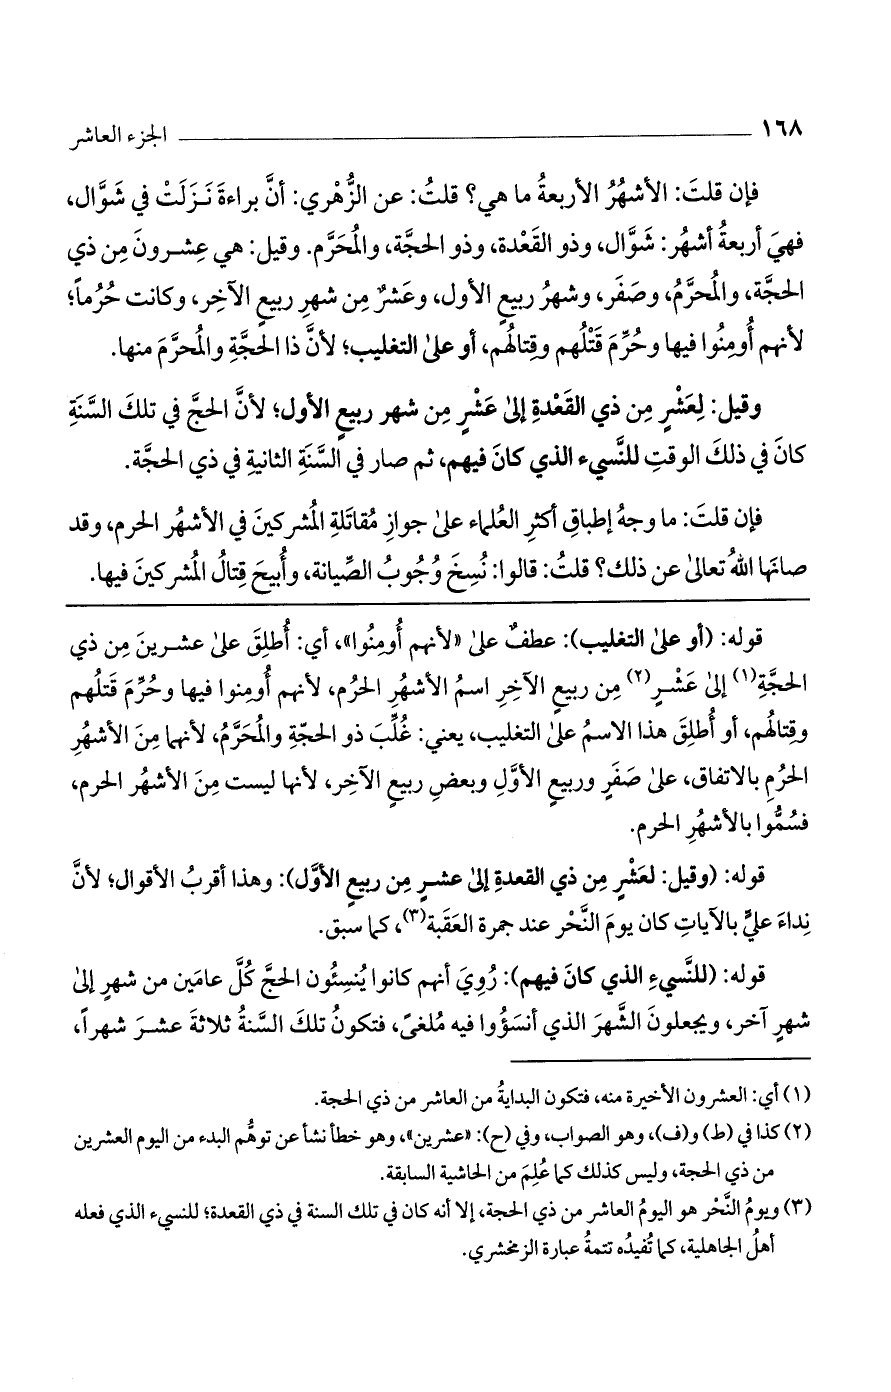 ١٦٨ الجزء العاشر
فإن قلتَ: الأشهُرُ الأربعةُ ما هي؟ قلتُ: عن الزُّهْري: أنَّ براءةَ نَـزَلَتْ في شَوَّال،
فهيَ أربعةُ أشهُر: شَوَّال، وذو القَعْدة، وذو الحجَّة، والمُحَرَّم. وقيل: هي عِشـرونَ مِن ذي
الحجَّة، والمُحرَّمُ، وصَفَر، وشهرُ ربيعٍ الأول، وعَشرٌ مِن شهرِ ربيعٍ الآخِر، وكانت حُرُماً؛
لأنهم أُومِنُوا فيها وحُرِّمَ قَتْلُهم وقِتالهُم، أو علىٰ التغليب؛ لأنَّ ذا الحجَّةِ والمُحرَّمَ منها.
وقيل: لِعَشْرٍ مِن ذي القَعْدةِ إلىٰ عَشْرٍ مِن شهر ربيعٍ الأول؛ لأنَّ الحجَّ في تلكَ السَّنَةِ
كانَ في ذلكَ الوقتِ للنَّسيء الذي كانَ فيهم، ثم صار في السَّنَةِ الثانيةِ في ذي الحجَّة.
فإن قلتَ: ما وجهُ إطباقِ أكثرِ العُلماء علىٰ جوازِ مُقاتَلةِ المُشركينَ في الأشهُر الحرم، وقد
صانَها اللهُ تعالىٰ عن ذلك؟ قلتُ: قالوا: نُسِخَ وُجُوبُ الصِّيانة، وأُبيحَ قِتالُ المُشركينَ فيها.
قوله: (أو علىٰ التغليب): عطفٌ علىٰ «لأنهم أُومِنُوا»، أي: أُطلِقَ علىٰ عشـرينَ مِن ذي
الحجَّةِ(١) إلىٰ عَشْـرٍ(٢) مِن ربيعٍ الآخِرِ اسمُ الأشهُرِ الحرُم، لأنهم أُومِنوا فيها وحُرِّمَ قَتلُهم
وقِتالهُم، أو أُطلِقَ هذا الاسمُ علىٰ التغليب، يعني: غُلِّبَ ذو الحجّةِ والمُحَرَّمُ، لأنهما مِنَ الأشهُرِ
الحرُمِ بالاتفاق، علىٰ صَفَرٍ وربيعٍ الأوَّلِ وبعضِ ربيعٍ الآخِر، لأنها ليست مِنَ الأشهُر الحرم،
فسُمُّوا بالأشهُرِ الحرم.
قوله: (وقيل: لعَشْرٍ مِن ذي القعدةِ إلىٰ عشـرٍ مِن ربيعٍ الأوَّل): وهذا أقربُ الأقوال؛ لأنَّ
نِداءَ عليٍّ بالآياتِ كان يومَ النَّحْر عند جمرة العَقَبة(٣)، كما سبق.
قوله: (للنَّسيءِ الذي كانَ فيهم): رُوِيَ أنهم كانوا يُنسِئُون الحجَّ كُلَّ عامَين من شهرٍ إلىٰ
شهرٍ آخر، ويجعلونَ الشَّهرَ الذي أنسَؤُوا فيه مُلغىً، فتكونُ تلكَ السَّنةُ ثلاثةَ عشـرَ شهراً،
(١) أي: العشرون الأخيرة منه، فتكون البدايةُ من العاشر من ذي الحجة.
(٢) كذا في (ط) و(ف)، وهو الصواب، وفي (ح): «عشرين»، وهو خطأ نشأ عن توهُّم البدء من اليوم العشرين
من ذي الحجة، وليس كذلك كما عُلِمَ من الحاشية السابقة.
(٣) ويومُ النَّحْر هو اليومُ العاشر من ذي الحجة، إلا أنه كان في تلك السنة في ذي القعدة؛ للنسيء الذي فعله
أهلُ الجاهلية، كما تُفيدُه تتمةُ عبارة الزمخشري.